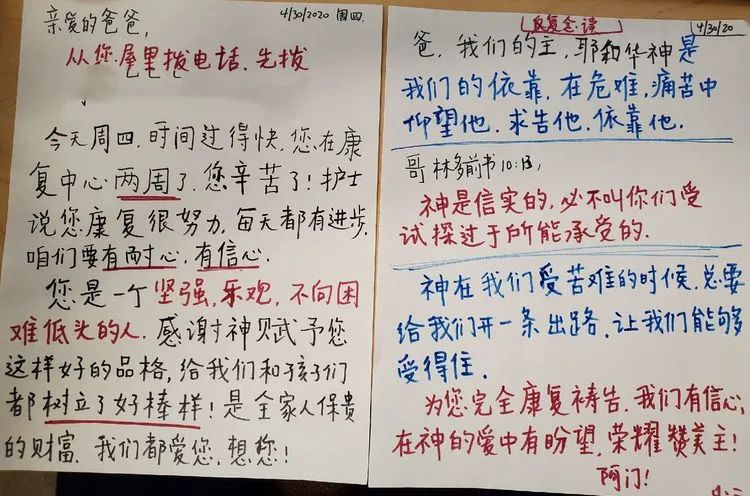 亲爱的爸爸, 4/30/2020 周四.
从您屋里拨电话. 先拨
今天周四. 时间过得快. 您在康
复中心两周了. 您辛苦了! 护士
说您康复很努力, 每天都有进步.
咱们要有耐心, 有信心.
您是一个坚强, 乐观, 不向困
难低头的人. 感谢神赋予您
这样好的品格, 给我们和孩子们
都树立了好棒样! 是全家人保贵
的财富. 我们都爱您, 想您!
反复念·读 4/30/20
爸, 我们的主, 耶和华神是
我们的依靠. 在危难, 痛苦中
仰望他. 求告他. 依靠他.
哥林多前书 10:13,
神是信实的, 必不叫你们受
试探过于所能承受的.
神在我们受苦难的时候. 总要
给我们开一条出路. 让我们能够
受得住.
为您完全康复祷告. 我们有信心;
在神的爱中有盼望. 荣耀赞美主!
阿门!